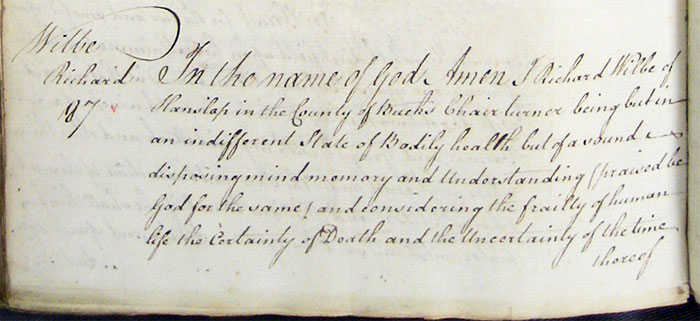 Wilbe
Richard
187
In the name of God Amen I Richard Wilbe of
Hanslap in the County of Bucks Chair turner being but in
an indifferent State of Bodily health but of a sound
disposing mind memory and Understanding (praised be
God for the same) and considering the frailty of human
life the Certainty of Death and the Uncertainty of the time
thereof